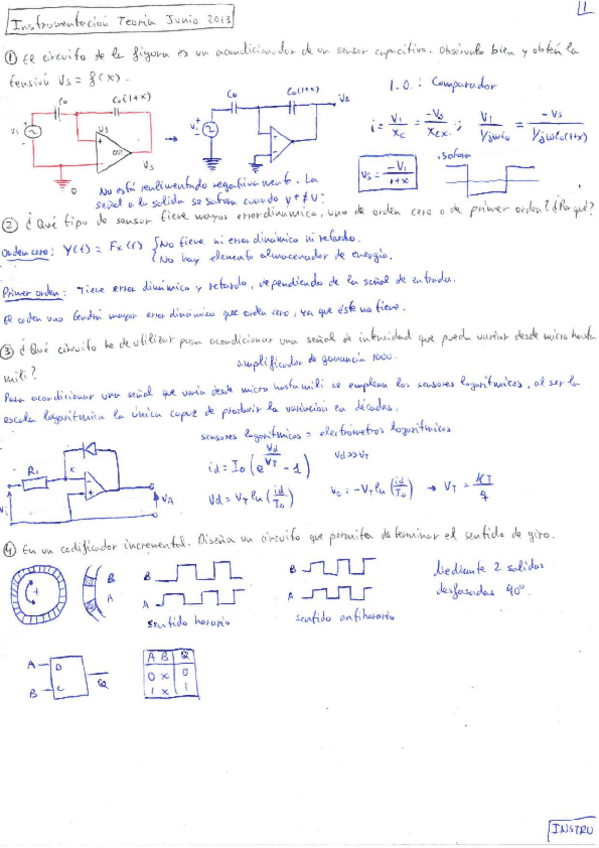 Instrumentación Teoría Junio 2013
1
① El circuito de la figura es un acondicionador de un sensor capacitivo. Obsérvalo bien y obtén la
tensión Vs = f(x).
1.0.: Comparador
C0 C0(1+x) Vs
Vi Vs OUT Vs 0
C0 C0(1+x) Vs
Vi
i = Vi/Xc = -Vs/Xcx ; Vi/(1/jωC0) = -Vs/(1/jωC0(1+x))
Vs = -Vi/(1+x)
satura
No está realimentado negativamente. La
señal a la salida se satura cuando V+ ≠ V-
② ¿Qué tipo de sensor tiene mayor error dinámico, uno de orden cero o de primer orden? ¿Por qué?
Orden cero: Y(t) = Fx(t) { No tiene ni error dinámico ni retardo.
No hay elemento almacenador de energía.
Primer orden: Tiene error dinámico y retardo, dependiendo de la señal de entrada.
El orden uno tendrá mayor error dinámico que orden cero, ya que éste no tiene.
③ ¿Qué circuito he de utilizar para acondicionar una señal de intensidad que pueda variar desde micro hasta
mili?
amplificador de ganancia 1000.
Para acondicionar una señal que varía desde micro hasta mili se emplean los sensores logarítmicos, al ser la
escala logarítmica la única capaz de producir la variación en décadas.
sensores logarítmicos = electrómetros logarítmicos
id = I0 (e^(Vd/VT) - 1) Vd>>VT
Vd = VT ln (id/I0) v0 = -VT ln (id/I0) → VT = KT/q
R1 x
Vi VA
④ En un codificador incremental. Diseña un circuito que permita determinar el sentido de giro.
+ B A
B
A
sentido horario
B
A
sentido antihorario
Mediante 2 salidas
desfasadas 90°.
A D
B C Q
A B Q
0 x 0
1 x 1
INSTRU